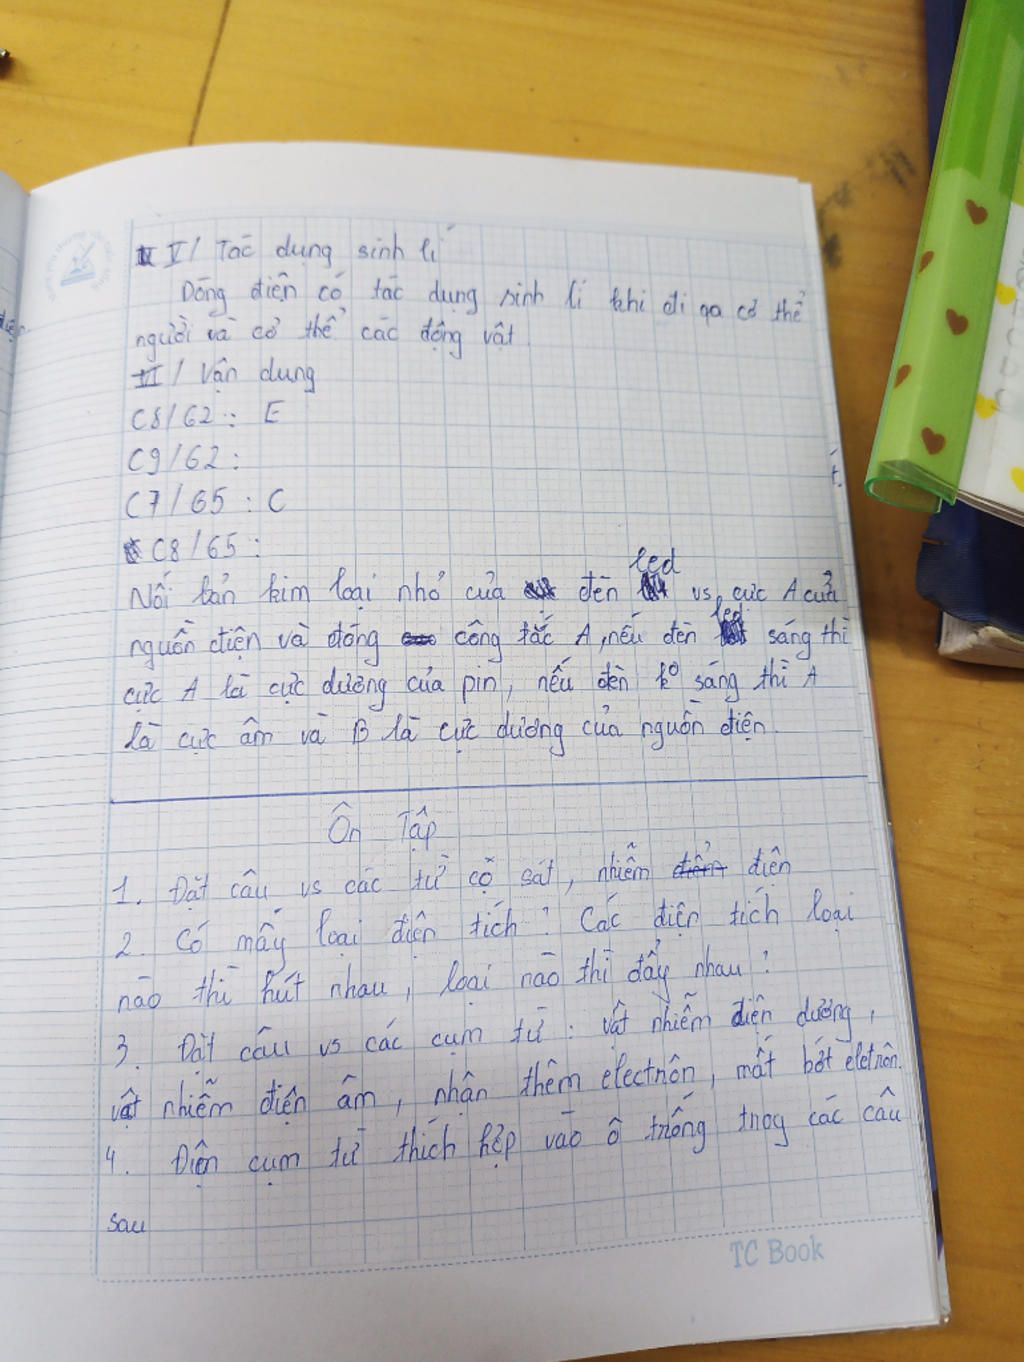 V/ Tác dụng sinh lí
Dòng điện có tác dụng sinh lí khi đi qa cơ thể
người và cơ thể các động vật.
III/ Vận dụng
C8/62: E
C9/62:
C7/65: C
C8/65:
Nối bản kim loại nhỏ của đèn led vs cực A của
nguồn điện và đóng công tắc A, nếu đèn led sáng thì
cực A là cực dương của pin, nếu đèn kº sáng thì A
là cực âm và B là cực dương của nguồn điện.
Ôn Tập
1. Đặt câu vs các từ cọ sát, nhiễm điện
2. Có mấy loại điện tích? Các điện tích loại
nào thì hút nhau, loại nào thì đẩy nhau?
3. Đặt câu vs các cụm từ: vật nhiễm điện dương,
vật nhiễm điện âm, nhận thêm electrôn, mất bớt eletrôn.
4. Điền cụm từ thích hợp vào ô trống trog các câu
sau
TC Book